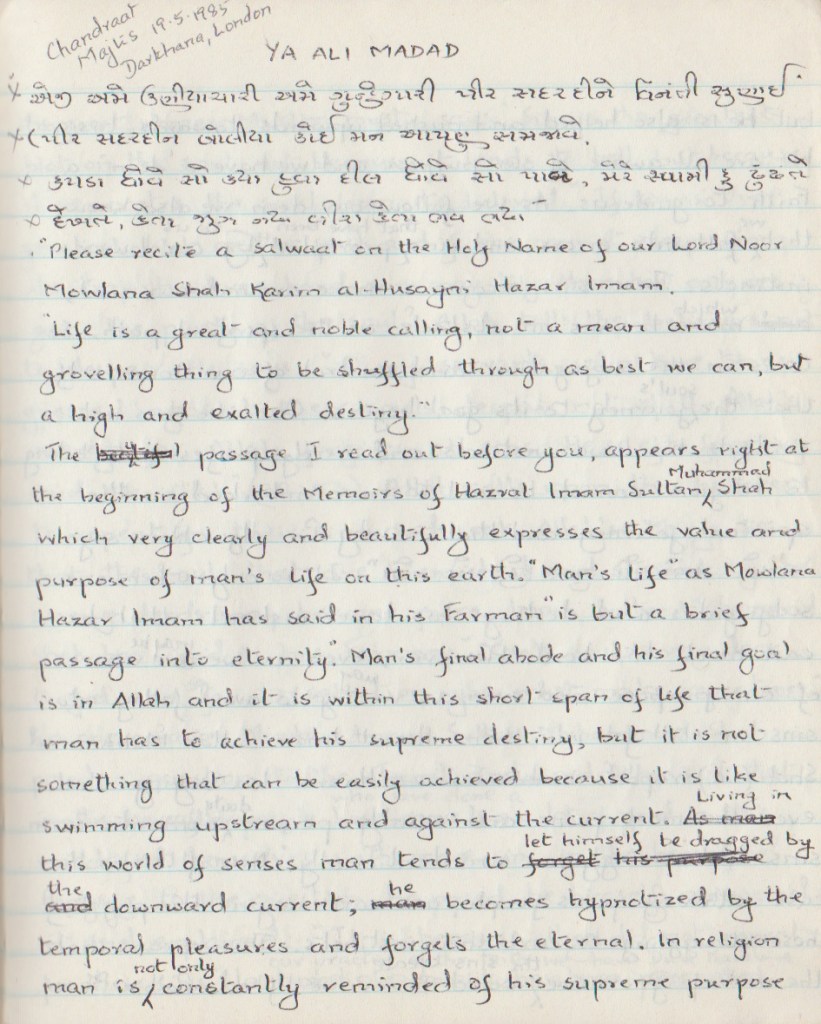 Chandraat
Majlis 19.5.1985
Darkhana, London
YA ALI MADAD
× એજી અમે ઉણીયાચારી અમે ગુન્હેગારી પીર સદરદીને વિનંતી સુણાઈ
× પીર સદરદીન બોલીયા કોઈ મન આપણુ સમજાવે.
× કપડા ધોવે સો કયા હુવા દીલ ધોવે સો પાવે, મેરે સ્વામી કુ ઢુંઢતે
× દેખતે, કેતા જુગ ગયા વીરા કેતા ભવ ભયા
"Please recite a salwaat on the Holy Name of our Lord Noor
Mowlana Shah Karim al-Husayni Hazar Imam.
"Life is a great and noble calling, not a mean and
grovelling thing to be shuffled through as best we can, but
a high and exalted destiny."
The passage I read out before you, appears right at
the beginning of the Memoirs of Hazrat Imam Sultan Muhammad Shah
which very clearly and beautifully expresses the value and
purpose of man's life on this earth. "Man's life" as Mowlana
Hazar Imam has said in his Farman "is but a brief
passage into eternity." Man's final abode and his final goal
is in Allah and it is within this short span of life that
man has to achieve his supreme destiny, but it is not
something that can be easily achieved because it is like
swimming upstream and against the current. As man Living in
this world of senses man tends to forget his purpose let himself be dragged by
and the downward current; man he becomes hypnotized by the
temporal pleasures and forgets the eternal. In religion
man is not only constantly reminded of his supreme purpose